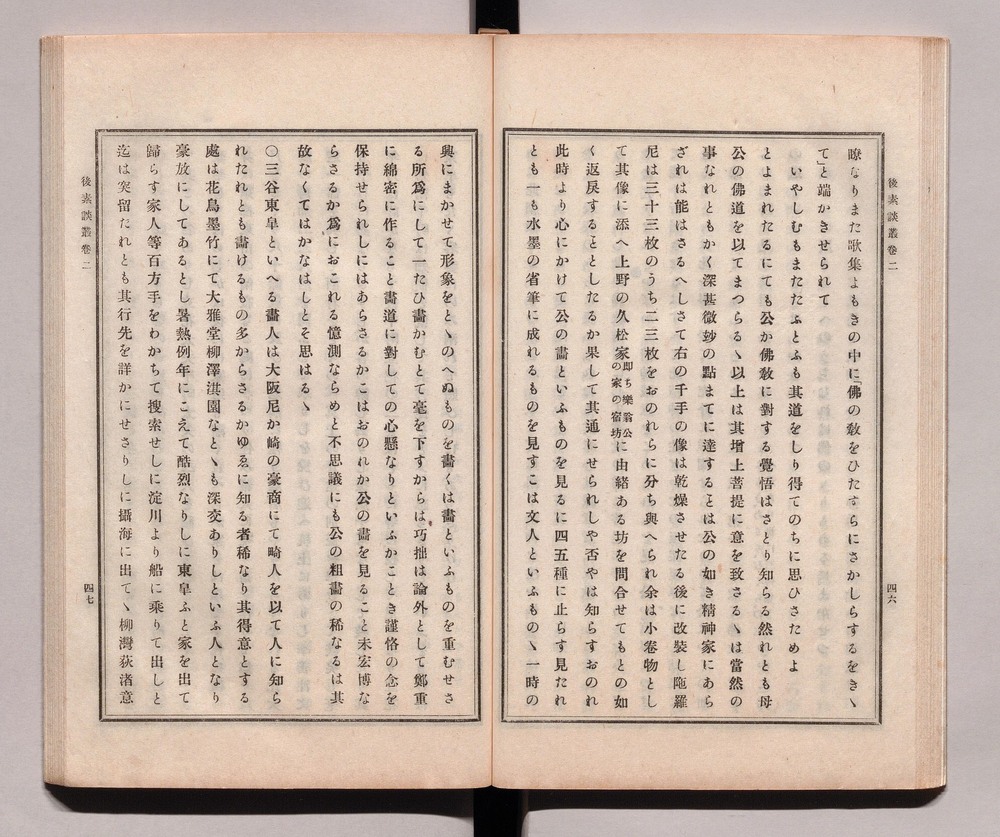 後素談叢卷二
四六
瞭なりまた歌集よもきの中に「佛の敎をひたすらにさかしらするをきゝ
て」と端かきせられて
のいやしむもまたたふとふも其道をしり得てのちに思ひさためよ
とよまれたるにても公か佛敎に對する覺悟はさとり知らる然れとも母
公の佛道を以てまつらるゝ以上は其增上菩提に意を致さるゝは當然の
事なれともかく深甚微玅の點まてに達するとは公の如き精神家にあら
されは能はさるへしさて右の千手の像は乾燥させたる後に改裝し陁羅
尼は三十三枚のうち二三枚をおのれらに分ち與へられ余は小卷物とし
て其像に添へ上野の久松家卽ち樂翁公の家の宿坊に由緖ある坊を問合せてもとの如
く返戾するととしたるか果して其通にせられしや否やは知らすおのれ
此時より心にかけて公の畫といふものを見るに四五種に止らす見たれ
とも一も水墨の省筆に成れるものを見すこは文人といふものゝ一時の
興にまかせて形象をとゝのへぬものを畫くは畫といふものを重むせさ
る所爲にして一たひ畫かむとて毫を下すからは巧拙は論外として鄭重
に綿密に作ること畫道に對しての心懸なりといふかことき謹恪の念を
保持せられしにはあらさるかこはおのれか公の畫を見ること未宏博な
らさるか爲におこれる憶測ならめと不思議にも公の粗畫の稀なるは其
故なくてはかなはしとそ思はるゝ
〇三谷東皐といへる畫人は大阪尼か崎の豪商にて畸人を以て人に知ら
れたれとも畵けるもの多からさるかゆゑに知る者稀なり其得意とする
處は花鳥墨竹にて大雅堂柳澤淇園なとゝも深交ありしといふ人となり
豪放にしてあるとし暑熱例年にこえて酷烈なりしに東皐ふと家を出て
歸らす家人等百方手をわかちて搜索せしに淀川より船に乘りて出しと
迄は突留たれとも其行先を詳かにせさりしに攝海に出てゝ柳灣荻渚意
後素談叢卷二
四七